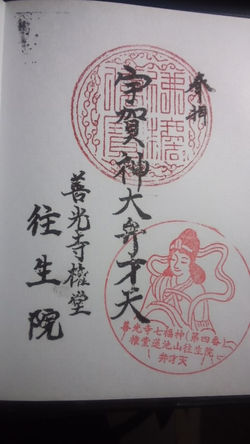 奉拝
宇賀神大弁才天
善光寺権堂
往生院
善光寺七福神(第四番)
権堂蓮池山往生院
弁才天